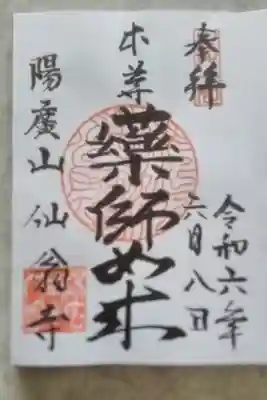 奉拝
令和六年
六月八日
本尊
薬師如来
陽廣山仙翁寺